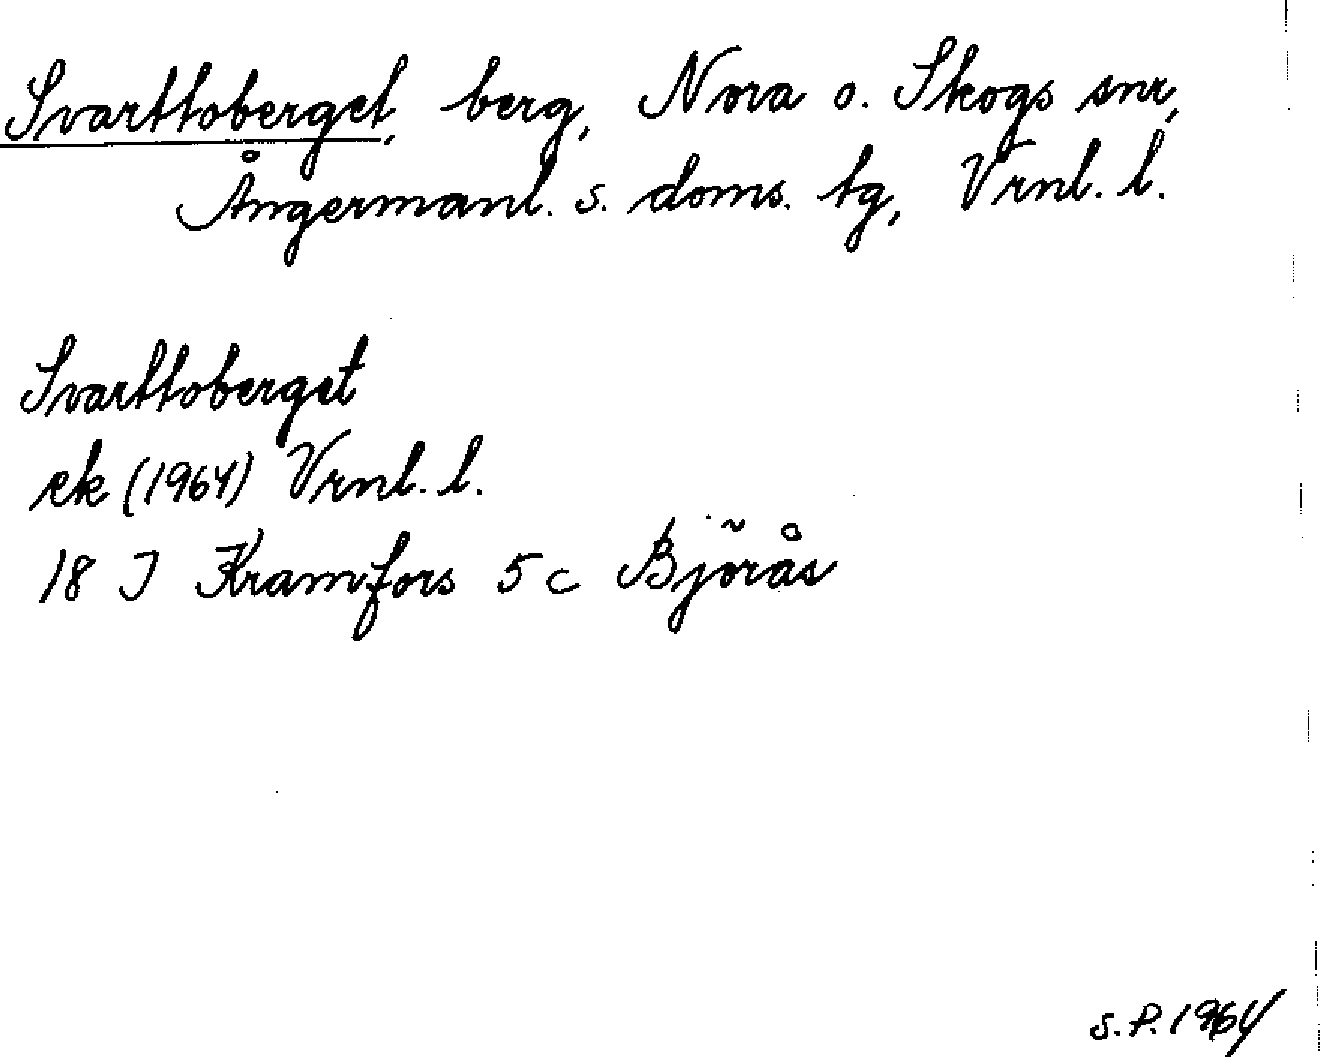 Svarttoberget, berg, Nora o. Skogs snr,
Ångermanl. s. doms. tg, Vrnl. l.
Svarttoberget
ek (1964) Vrnl. l.
18 J Kramfors 5 c Björås
S.P. 1964